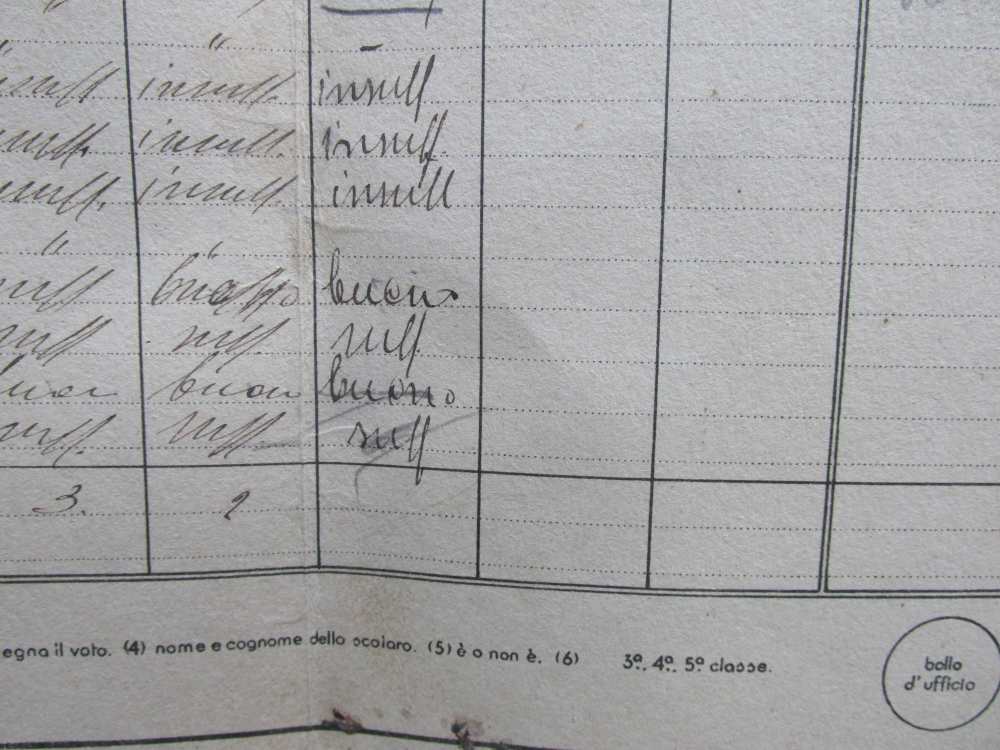 " -
insuff. insuff. insuff
insuff. insuff. insuff.
insuff. insuff. insuff
"
suff buono buono
suff suff. suff.
buon buon buono
suff. suff. suff
3. 2
egna il voto. (4) nome e cognome dello scolaro. (5) è o non è. (6) 3ª. 4ª. 5ª classe.
bollo
d'ufficio